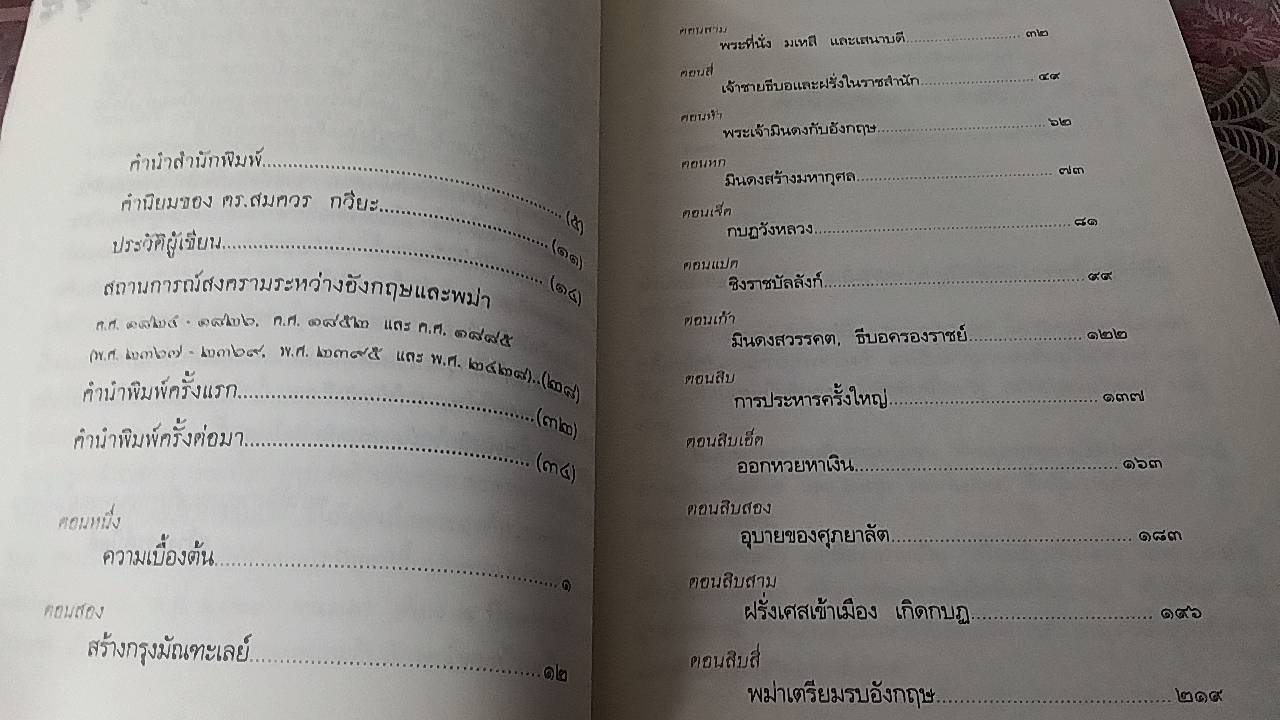 คำนำสำนักพิมพ์ (๕)
คำนิยมของ ดร.สมควร กวียะ (๑๑)
ประวัติผู้เขียน (๑๔)
สถานการณ์สงครามระหว่างอังกฤษและพม่า
ค.ศ. ๑๘๒๔ - ๑๘๒๖, ค.ศ. ๑๘๕๒ และ ค.ศ. ๑๘๘๕
(พ.ศ. ๒๓๖๗ - ๒๓๖๙, พ.ศ. ๒๓๙๕ และ พ.ศ. ๒๔๒๘)..(๒๘)
คำนำพิมพ์ครั้งแรก (๓๒)
คำนำพิมพ์ครั้งต่อมา (๓๔)
ตอนหนึ่ง
ความเบื้องต้น ๑
ตอนสอง
สร้างกรุงมัณฑะเลย์ ๑๒
ตอนสาม
พระที่นั่ง มเหสี และเสนาบดี ๓๒
ตอนสี่
เจ้าชายธีบอและฝรั่งในราชสำนัก ๔๙
ตอนห้า
พระเจ้ามินดงกับอังกฤษ ๖๒
ตอนหก
มินดงสร้างมหากุศล ๗๓
ตอนเจ็ด
กบฏวังหลวง ๘๑
ตอนแปด
ชิงราชบัลลังก์ ๙๙
ตอนเก้า
มินดงสวรรคต, ธีบอครองราชย์ ๑๒๒
ตอนสิบ
การประหารครั้งใหญ่ ๑๓๗
ตอนสิบเอ็ด
ออกหวยหาเงิน ๑๖๓
ตอนสิบสอง
อุบายของศุภยาลัต ๑๘๓
ตอนสิบสาม
ฝรั่งเศสเข้าเมือง เกิดกบฏ ๑๙๖
ตอนสิบสี่
พม่าเตรียมรบอังกฤษ ๒๑๙